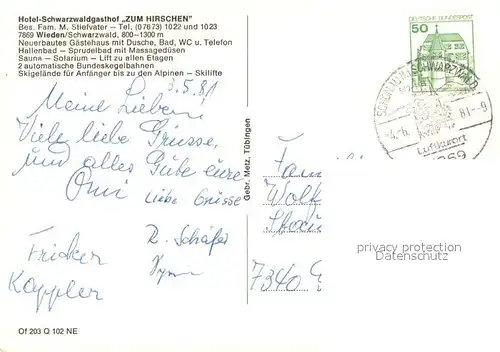 Hotel-Schwarzwaldgasthof „ZUM HIRSCHEN"
Bes. Fam. M. Stiefvater – Tel. (07673) 1022 und 1023
7869 Wieden/Schwarzwald, 800–1300 m
Neuerbautes Gästehaus mit Dusche, Bad, WC u. Telefon
Hallenbad – Sprudelbad mit Massagedüsen
Sauna – Solarium – Lift zu allen Etagen
2 automatische Bundeskegelbahnen
Skigelände für Anfänger bis zu den Alpinen – Skilifte
3.5.81
Meine Lieben!
Viele liebe Grüsse,
und alles Gute eure
Omi
Liebe Grüsse
R. Schäfer
Fricker
Kappler
Of 203 Q 102 NE
Gebr. Metz, Tübingen
50
DEUTSCHE BUNDESPOST
SCHWARZWALD
Luftkurort
Fam
Wolf
7340 G
privacy protection
Datenschutz